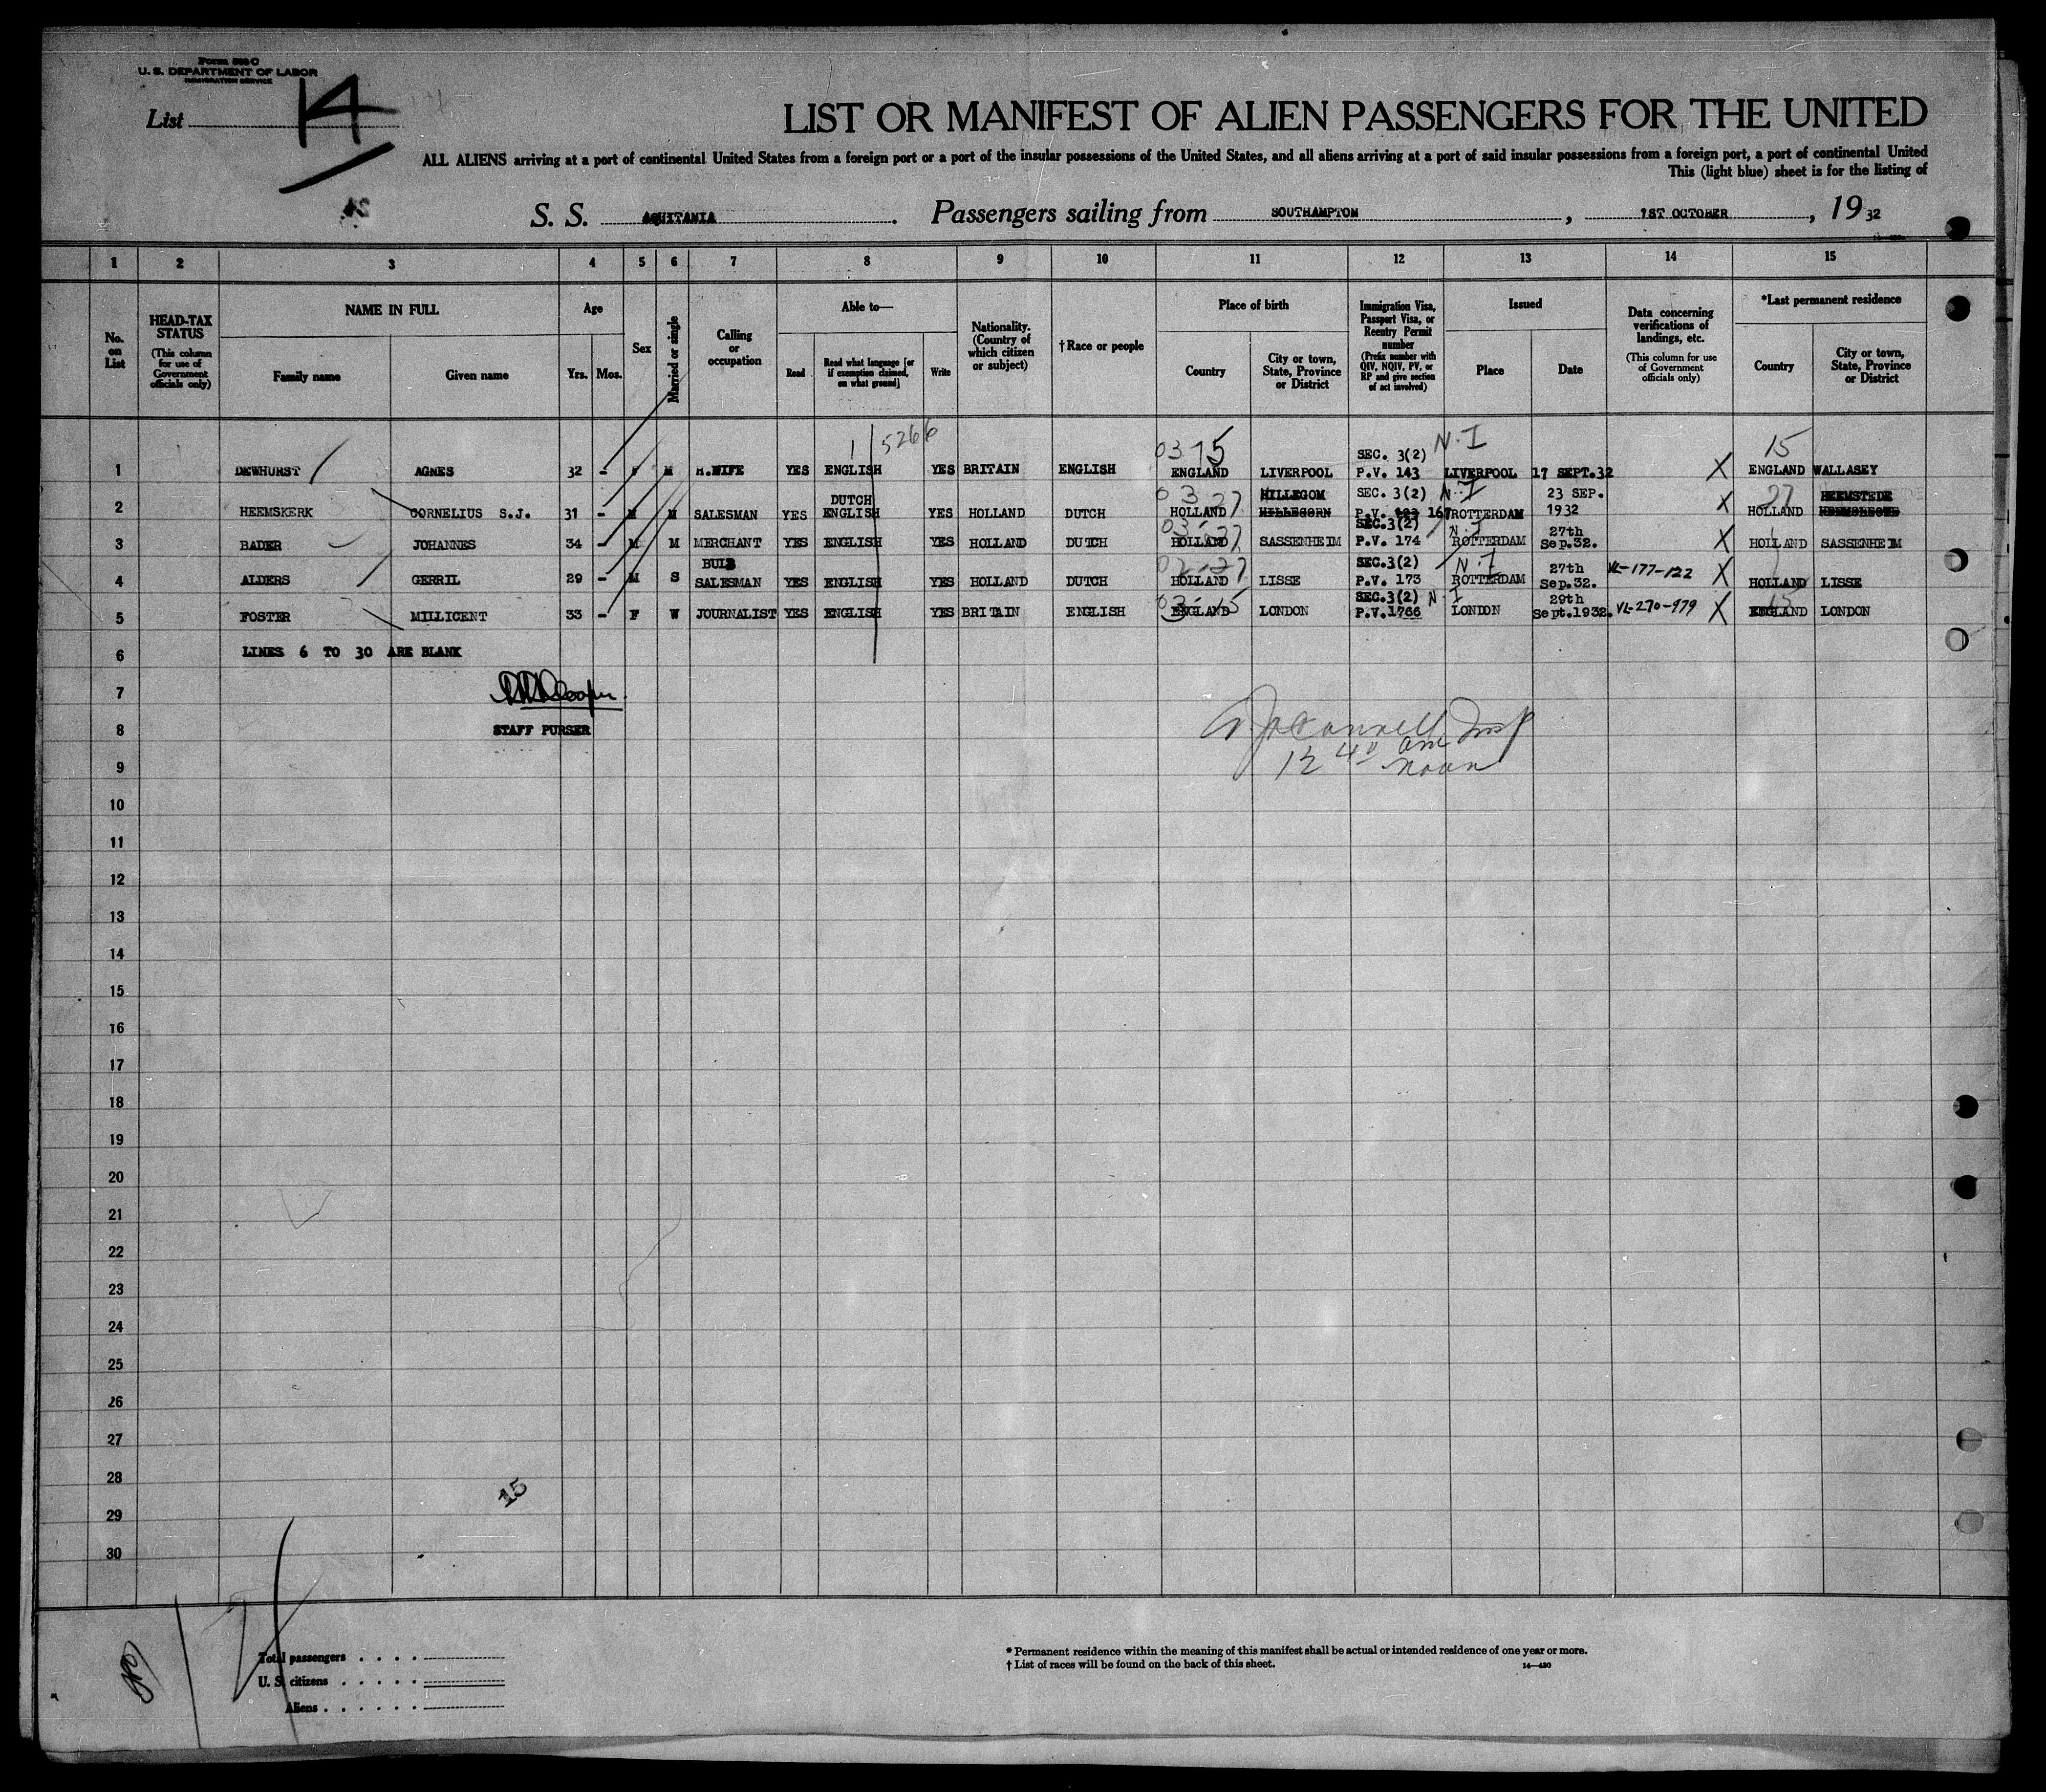 Form 500 C
U. S. DEPARTMENT OF LABOR
IMMIGRATION SERVICE
List 14
LIST OR MANIFEST OF ALIEN PASSENGERS FOR THE UNITED
ALL ALIENS arriving at a port of continental United States from a foreign port or a port of the insular possessions of the United States, and all aliens arriving at a port of said insular possessions from a foreign port, a port of continental United
This (light blue) sheet is for the listing of
S. S. AQUITANIA. Passengers sailing from SOUTHAMPTON, 1ST OCTOBER, 19 32
1 2 3 4 5 6 7 8 9 10 11 12 13 14 15
No. on List
HEAD-TAX STATUS (This column for use of Government officials only)
NAME IN FULL
Family name Given name
Age
Yrs. Mos.
Sex
Married or single
Calling or occupation
Able to—
Read Read what language [or if exemption claimed, on what ground] Write
Nationality. (Country of which citizen or subject)
†Race or people
Place of birth
Country City or town, State, Province or District
Immigration Visa, Passport Visa, or Reentry Permit number (Prefix number with QIV, NQIV, PV, or RP and give section of act involved)
Issued
Place Date
Data concerning verifications of landings, etc. (This column for use of Government officials only)
*Last permanent residence
Country City or town, State, Province or District
1 5266 0315 N.I 15
1 DEWHURST AGNES 32 - F M H.WIFE YES ENGLISH YES BRITAIN ENGLISH ENGLAND LIVERPOOL SEC. 3(2) P.V. 143 LIVERPOOL 17 SEPT.32 X ENGLAND WALLASEY
2 HEEMSKERK CORNELIUS S.J. 31 - M M SALESMAN YES DUTCH ENGLISH YES HOLLAND DUTCH 03 27 HOLLAND HILLEGOM HILLEGORN SEC. 3(2) P.V. 167 N.I ROTTERDAM 23 SEP. 1932 X 27 HOLLAND HEEMSTEDE
3 BADER JOHANNES 34 - M M MERCHANT YES ENGLISH YES HOLLAND DUTCH 03-27 HOLLAND SASSENHEIM SEC.3(2) P.V. 174 N.I ROTTERDAM 27th Sep.32. X HOLLAND SASSENHEIM
4 ALDERS GERRIL 29 - M S BULB SALESMAN YES ENGLISH YES HOLLAND DUTCH 02-27 HOLLAND LISSE SEC.3(2) P.V. 173 N.I ROTTERDAM 27th Sep.32. VL-177-122 X HOLLAND LISSE
5 FOSTER MILLICENT 33 - F W JOURNALIST YES ENGLISH YES BRITAIN ENGLISH 03-15 ENGLAND LONDON SEC.3(2) P.V.1766 N.I LONDON 29th Sept.1932. VL-270-979 X 15 ENGLAND LONDON
6 LINES 6 TO 30 ARE BLANK
7
8 STAFF PURSER
Insp
12 40 am
noon
9
10
11
12
13
14
15
16
17
18
19
20
21
22
23
24
25
26
27
28
15
29
30
Total passengers . . . .
U. S. citizens . . . . .
Aliens . . . . . .
* Permanent residence within the meaning of this manifest shall be actual or intended residence of one year or more.
† List of races will be found on the back of this sheet. 14—430